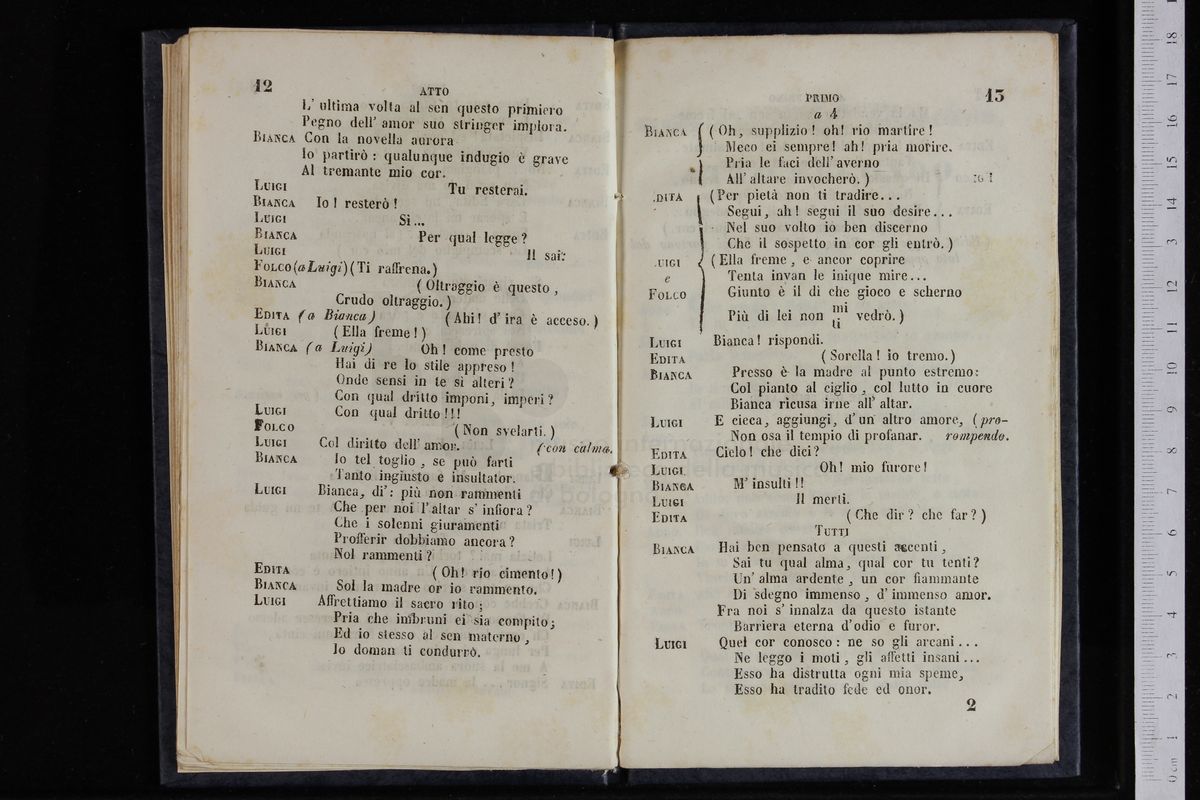 12
ATTO
L' ultima volta al sen questo primiero
Pegno dell' amor suo stringer implora.
BIANCA Con la novella aurora
Io partirò : qualunque indugio è grave
Al tremante mio cor.
LUIGI Tu resterai.
BIANCA Io ! resterò !
LUIGI Sì ...
BIANCA Per qual legge ?
LUIGI Il sai:
FOLCO (a Luigi) (Ti raffrena.)
BIANCA ( Oltraggio è questo ,
Crudo oltraggio. )
EDITA ( a Bianca ) ( Ahi ! d' ira è acceso. )
LUIGI ( Ella freme ! )
BIANCA ( a Luigi ) Oh ! come presto
Hai di re lo stile appreso !
Onde sensi in te sì alteri ?
Con qual dritto imponi, imperi ?
LUIGI Con qual dritto !!!
FOLCO ( Non svelarti. )
LUIGI Col diritto dell' amor. ( con calma.
BIANCA Io tel toglio , se può farti
Tanto ingiusto e insultator.
LUIGI Bianca, di' : più non rammenti
Che per noi l' altar s' infiora ?
Che i solenni giuramenti
Profferir dobbiamo ancora ?
Nol rammenti ?
EDITA ( Oh ! rio cimento ! )
BIANCA Sol la madre or io rammento.
LUIGI Affrettiamo il sacro rito ;
Pria che imbruni ei sia compito ;
Ed io stesso al sen materno ,
Io doman ti condurrò.
PRIMO
13
a 4
BIANCA ( Oh, supplizio ! oh ! rio martire !
Meco ei sempre ! ah ! pria morire.
Pria le faci dell' averno
All' altare invocherò. )
.DITA (Per pietà non ti tradire...
Segui, ah ! segui il suo desire...
Nel suo volto io ben discerno
Che il sospetto in cor gli entrò. )
.UIGI ( Ella freme , e ancor coprire
e Tenta invan le inique mire...
FOLCO Giunto è il dì che gioco e scherno
Più di lei non mi ti vedrò. )
LUIGI Bianca ! rispondi.
EDITA ( Sorella ! io tremo. )
BIANCA Presso è la madre al punto estremo:
Col pianto al ciglio , col lutto in cuore
Bianca ricusa irne all' altar.
LUIGI E cieca, aggiungi, d' un altro amore, ( pro-
Non osa il tempio di profanar. rompendo.
EDITA Cielo ! che dici ?
LUIGI Oh! mio furore !
BIANCA M' insulti !!
LUIGI Il merti.
EDITA ( Che dir ? che far ? )
TUTTI
BIANCA Hai ben pensato a questi accenti ,
Sai tu qual alma, qual cor tu tenti ?
Un' alma ardente , un cor fiammante
Di sdegno immenso , d' immenso amor.
Fra noi s' innalza da questo istante
Barriera eterna d' odio e furor.
LUIGI Quel cor conosco : ne so gli arcani ...
Ne leggo i moti , gli affetti insani ...
Esso ha distrutta ogni mia speme,
Esso ha tradito fede ed onor.
2